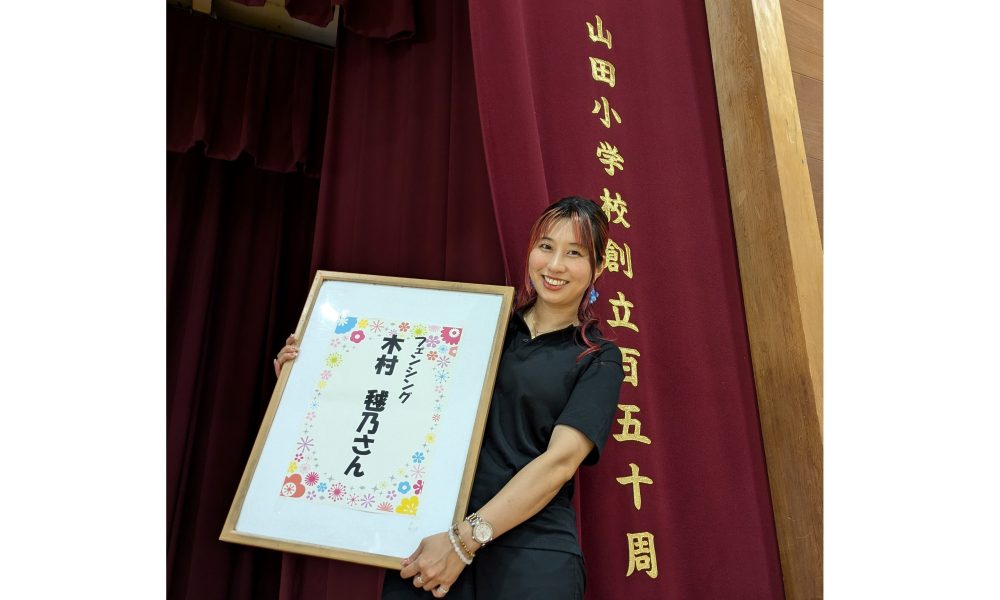 山田小学校創立百五十周
フェンシング
木村 毬乃さん